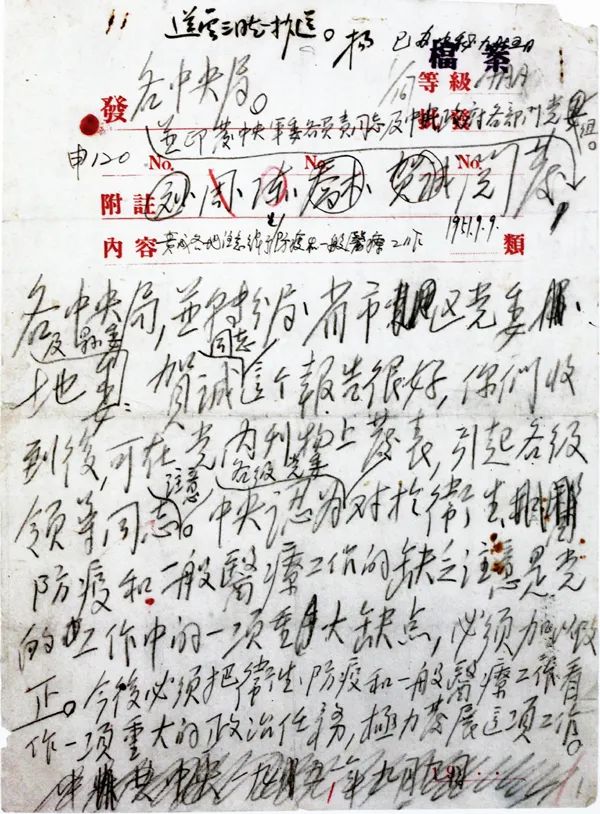 送雲三時抄送。 楊
檔案
等級
發 各中央局。
並印發中央軍委各負責同志及中央政府各部門党組。
申120 No. No. No.
附註 劉 周 陳 賀誠
內容 責成各地注意領導防疫和一般醫療工作 1951.9.9. 類
各中央局,並轉分局、省市區党委、
及縣委 同志
地委:賀誠這个報告很好,你們收
到後,可在党內刊物上發表,引起各級
注意 各級党委
領導同志。中央認為對於衛生
防疫和一般醫療工作的缺乏注意是党
的工作中的一項重大缺点,必須加以改
正。今後必須把衛生防疫和一般醫療工作看
作一項重大的政治任務,極力發展這項工作。
中央 一九五一年九月九日